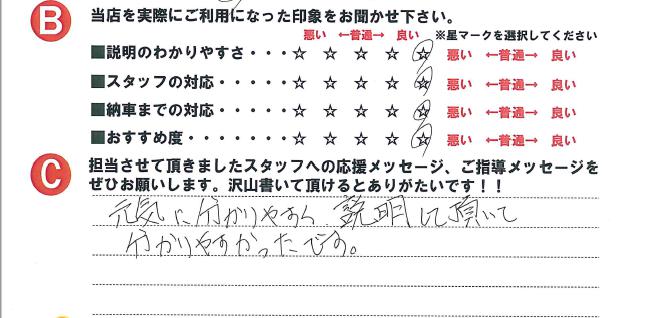 B 当店を実際にご利用になった印象をお聞かせ下さい。
悪い ←普通→ 良い ※星マークを選択してください
■説明のわかりやすさ・・・☆ ☆ ☆ ☆ ☆ 悪い ←普通→ 良い
■スタッフの対応・・・・・☆ ☆ ☆ ☆ ☆ 悪い ←普通→ 良い
■納車までの対応・・・・・☆ ☆ ☆ ☆ ☆ 悪い ←普通→ 良い
■おすすめ度・・・・・・・☆ ☆ ☆ ☆ ☆ 悪い ←普通→ 良い
C 担当させて頂きましたスタッフへの応援メッセージ、ご指導メッセージを
ぜひお願いします。沢山書いて頂けるとありがたいです！！
元気に分かりやすく説明して頂いて
分かりやすかったです。